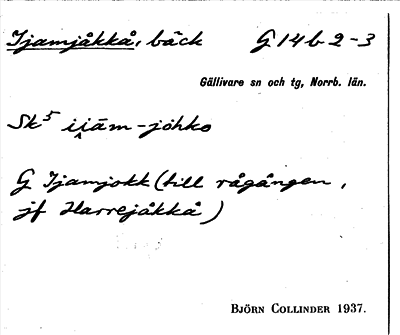 Ijamjåkkå, bäck G 14 b 2-3
Gällivare sn och tg, Norrb. län.
Sk⁵ i̭i̯äm-jöhko
G Ijamjokk (till rågången,
jf Harrejåkkå)
BJÖRN COLLINDER 1937.